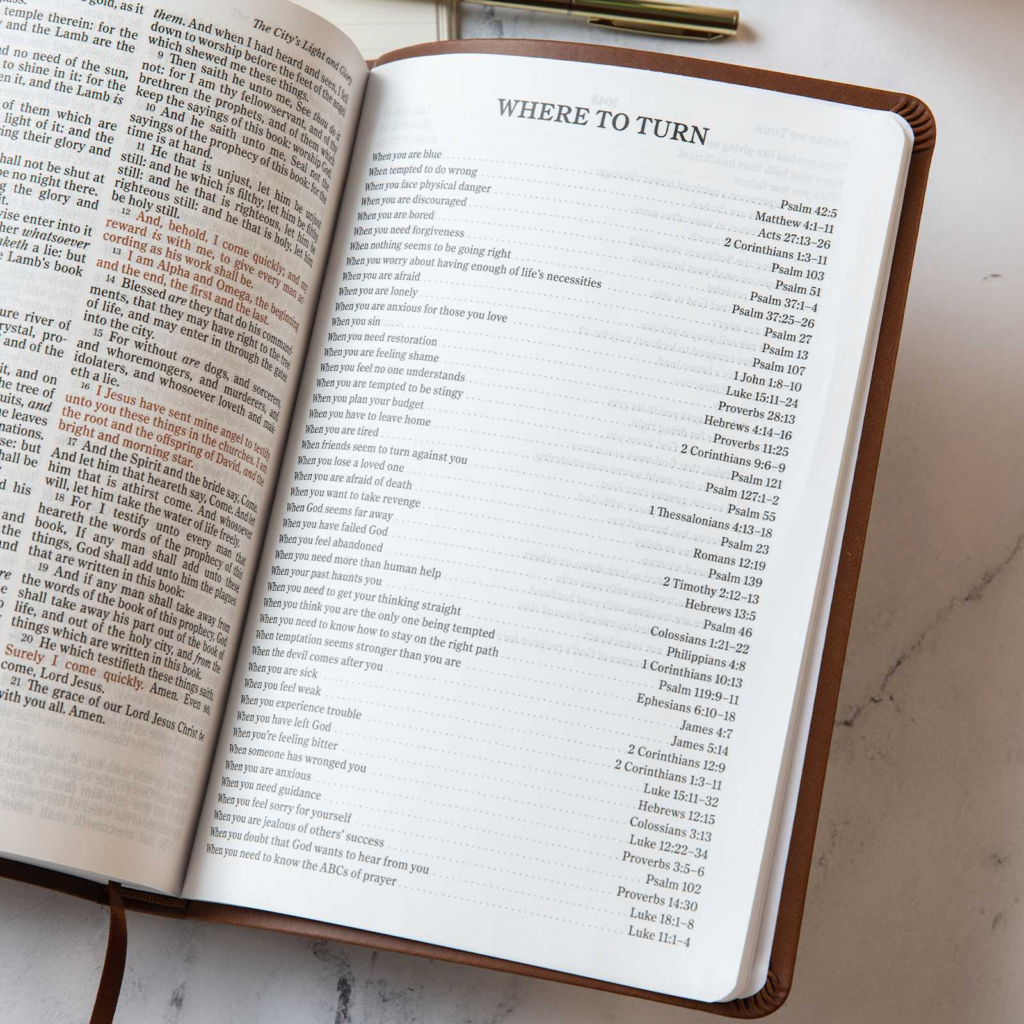 gold, as it
temple therein: for the
and the Lamb are the
no need of the sun,
to shine in it: for the
it, and the Lamb is
of them which are
light of it: and the
their glory and
shall not be shut at
be no night there.
the glory and
enter into it
whatsoever
a lie: but
Lamb's book
river of
and of the
it, and on
tree of
and
leaves
but
shall be
his
and
the
and
The City's Light and Glory
them. And when I had heard and seen, I fell
down to worship before the feet of the angel
which shewed me these things.
9 Then saith he unto me, See thou do it
not: for I am thy fellowservant, and of thy
brethren the prophets, and of them which
keep the sayings of this book: worship God.
10 And he saith unto me, Seal not the
sayings of the prophecy of this book: for the
time is at hand.
11 He that is unjust, let him be unjust
still: and he which is filthy, let him be filthy
still: and he that is righteous, let him be
righteous still: and he that is holy, let him
be holy still.
12 And, behold, I come quickly; and my
reward is with me, to give every man ac-
cording as his work shall be.
13 I am Alpha and Omega, the beginning
and the end, the first and the last.
14 Blessed are they that do his command-
ments, that they may have right to the tree
of life, and may enter in through the gates
into the city.
15 For without are dogs, and sorcerers,
and whoremongers, and murderers, and
idolaters, and whosoever loveth and mak-
eth a lie.
16 I Jesus have sent mine angel to testify
unto you these things in the churches. I am
the root and the offspring of David, and the
bright and morning star.
17 And the Spirit and the bride say, Come.
And let him that heareth say, Come. And let
him that is athirst come. And whosoever
will, let him take the water of life freely.
18 For I testify unto every man that
heareth the words of the prophecy of this
book, If any man shall add unto these
things, God shall add unto him the plagues
that are written in this book:
19 And if any man shall take away from
the words of the book of this prophecy, God
shall take away his part out of the book of
life, and out of the holy city, and from the
things which are written in this book.
20 He which testifieth these things saith,
Surely I come quickly. Amen. Even so,
come, Lord Jesus.
21 The grace of our Lord Jesus Christ be
with you all. Amen.
WHERE TO TURN
When you are blue Psalm 42:5
When tempted to do wrong Matthew 4:1–11
When you face physical danger Acts 27:13–26
When you are discouraged 2 Corinthians 1:3–11
When you are bored Psalm 103
When you need forgiveness Psalm 51
When nothing seems to be going right Psalm 37:1–4
When you worry about having enough of life's necessities Psalm 37:25–26
When you are afraid Psalm 27
When you are lonely Psalm 13
When you are anxious for those you love Psalm 107
When you sin 1 John 1:8–10
When you need restoration Luke 15:11–24
When you are feeling shame Proverbs 28:13
When you feel no one understands Hebrews 4:14–16
When you are tempted to be stingy Proverbs 11:25
When you plan your budget 2 Corinthians 9:6–9
When you have to leave home Psalm 121
When you are tired Psalm 127:1–2
When friends seem to turn against you Psalm 55
When you lose a loved one 1 Thessalonians 4:13–18
When you are afraid of death Psalm 23
When you want to take revenge Romans 12:19
When God seems far away Psalm 139
When you have failed God 2 Timothy 2:12–13
When you feel abandoned Hebrews 13:5
When you need more than human help Psalm 46
When your past haunts you Colossians 1:21–22
When you need to get your thinking straight Philippians 4:8
When you think you are the only one being tempted 1 Corinthians 10:13
When you need to know how to stay on the right path Psalm 119:9–11
When temptation seems stronger than you are Ephesians 6:10–18
When the devil comes after you James 4:7
When you are sick James 5:14
When you feel weak 2 Corinthians 12:9
When you experience trouble 2 Corinthians 1:3–11
When you have left God Luke 15:11–32
When you're feeling bitter Hebrews 12:15
When someone has wronged you Colossians 3:13
When you are anxious Luke 12:22–34
When you need guidance Proverbs 3:5–6
When you feel sorry for yourself Psalm 102
When you are jealous of others' success Proverbs 14:30
When you doubt that God wants to hear from you Luke 18:1–8
When you need to know the ABCs of prayer Luke 11:1–4